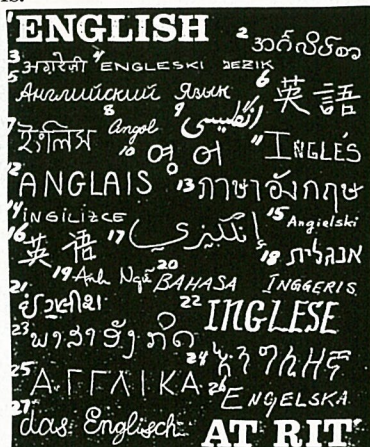 1 ENGLISH
2 အင်္ဂလိပ်စာ
3 अंग्रेजी 4 ENGLESKI JEZIK
5 Английский Язык 6 英語
7 ইংলিস 8 Angol 9 انگلیسی
10 영어 11 INGLÉS
12 ANGLAIS 13 ภาษาอังกฤษ
14 İNGİLİZCE 15 Angielski
16 英語 17 إنكليزي 18 אנגלית
19 Anh Ngữ 20 BAHASA INGGERIS
21 22 INGLESE
23 ພາສາອັງກິດ 24 እንግሊዘኛ
25 ΑΓΓΛΙΚΑ 26 ENGELSKA
27 das Englisch AT RIT